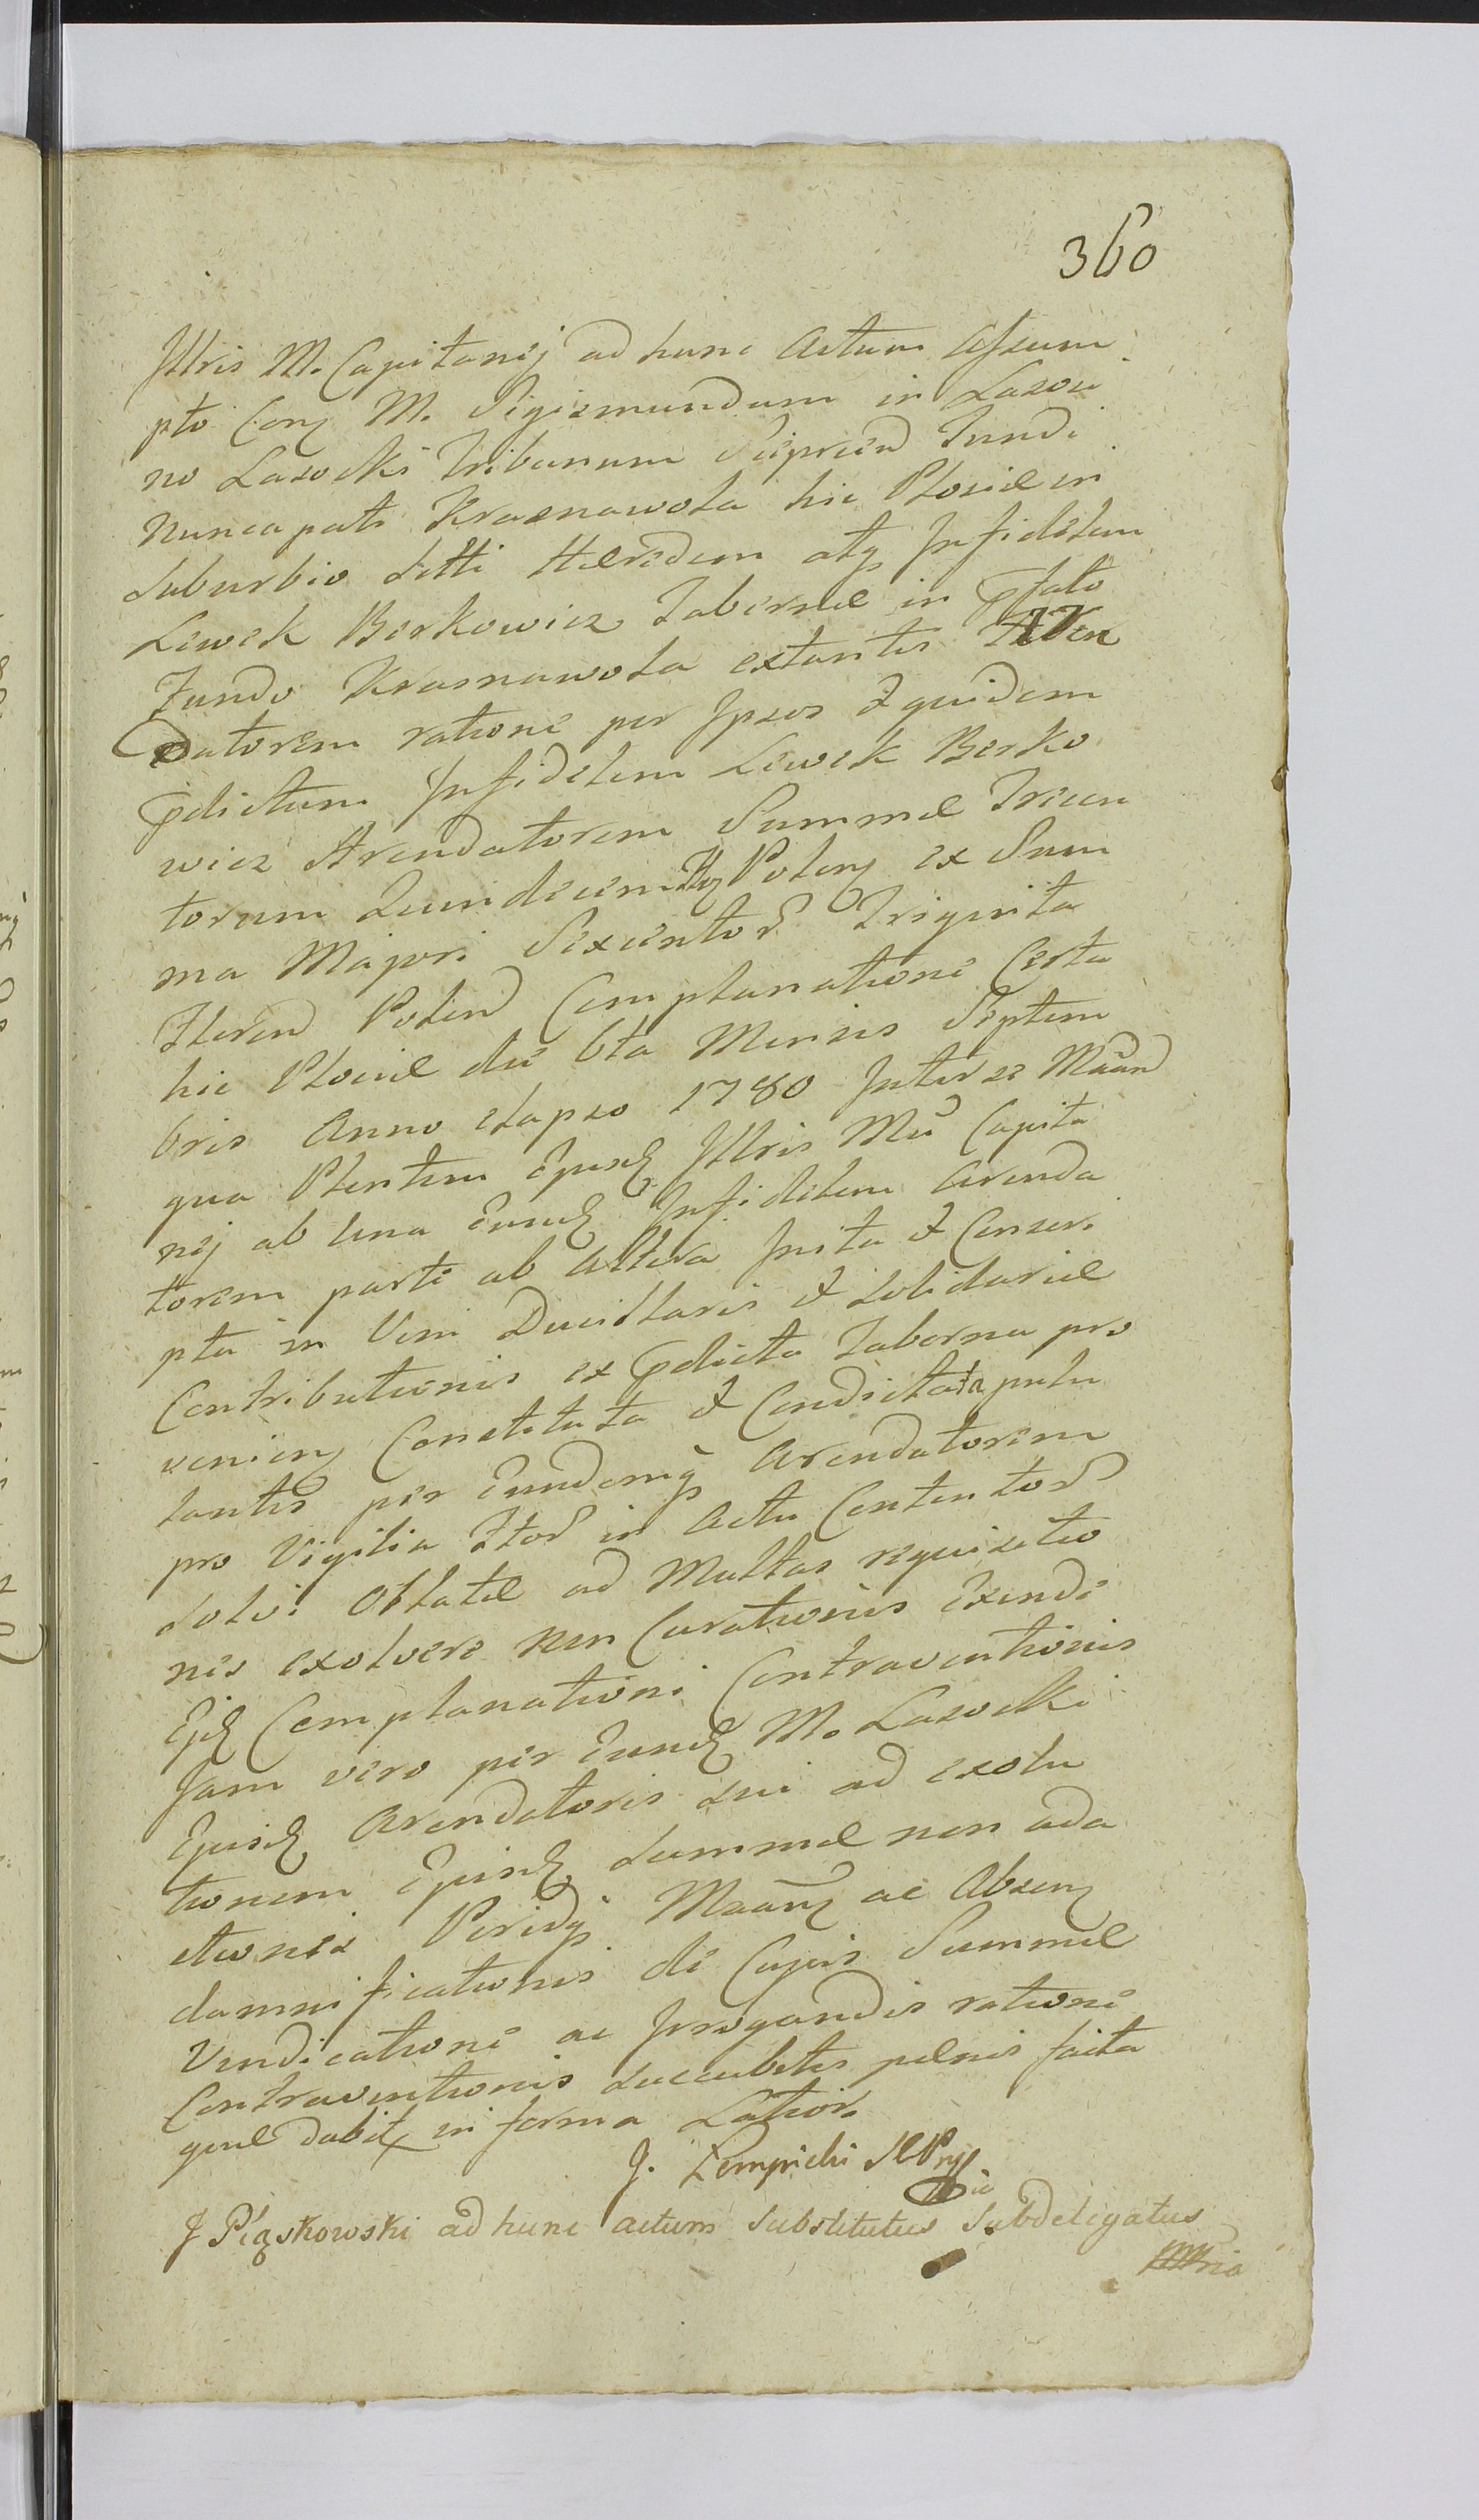 360
Jllris M. Capitanej ad hunc Actum Assum
pto Con M. Sigismundum in Lasoci
no Lasocki Tribunum Sieprcen Fundi
Nuncupati Krasnawola hic Plociæ in
Suburbio Siti Hæredem atq Infidelem
Lewek Berkowicz Tabernæ in pfato
Fundo Krasnawola extantis Aren
Datorem ratione per Ipsos & quidem
pdictum Infidelem Lewek Berko
wicz Arendatorem Summæ Trecen
torum Quindecim Polon ex Sum
ma Majori Sexcentor Triginta
Floren Polon Complanatione Certa
hic Plociæ die 6ta Mensis Septem
bris Anno elapso 1780 Inter se
qua Pntem Ejusd Jllris Mci Capita
nej ab una Eund Infidelem Arenda
torem parte ab Altera Inita & Conscri
pta in Vim Ducillaris & Solidariæ
Contributionis ex pdicta Taberna pro
venien Constituta & Condictata pulu
lantis per Eundemq Arendatorem
pro Vigilia Stor in Actu Contentor
Solvi Oblatæ ad Multas requisitio
nes exolvere non Curationis Exinde
Ejd Complanationi Contraventionis
Jam vero per Eund M. Lasocki
Ejusd Arendatoris sui ad exolu
tionem Ejusd Summæ non ada
ctionis ac Absen
damnificationis de Cujus Summæ
Vendicatione ac Irrogandis ratione
Contraventionis Succubitis pœnis facta
quæ dabit in forma Latiori
J. Zempicki
J Piąskowski ad hunc actum Substitutus Subdeligatus